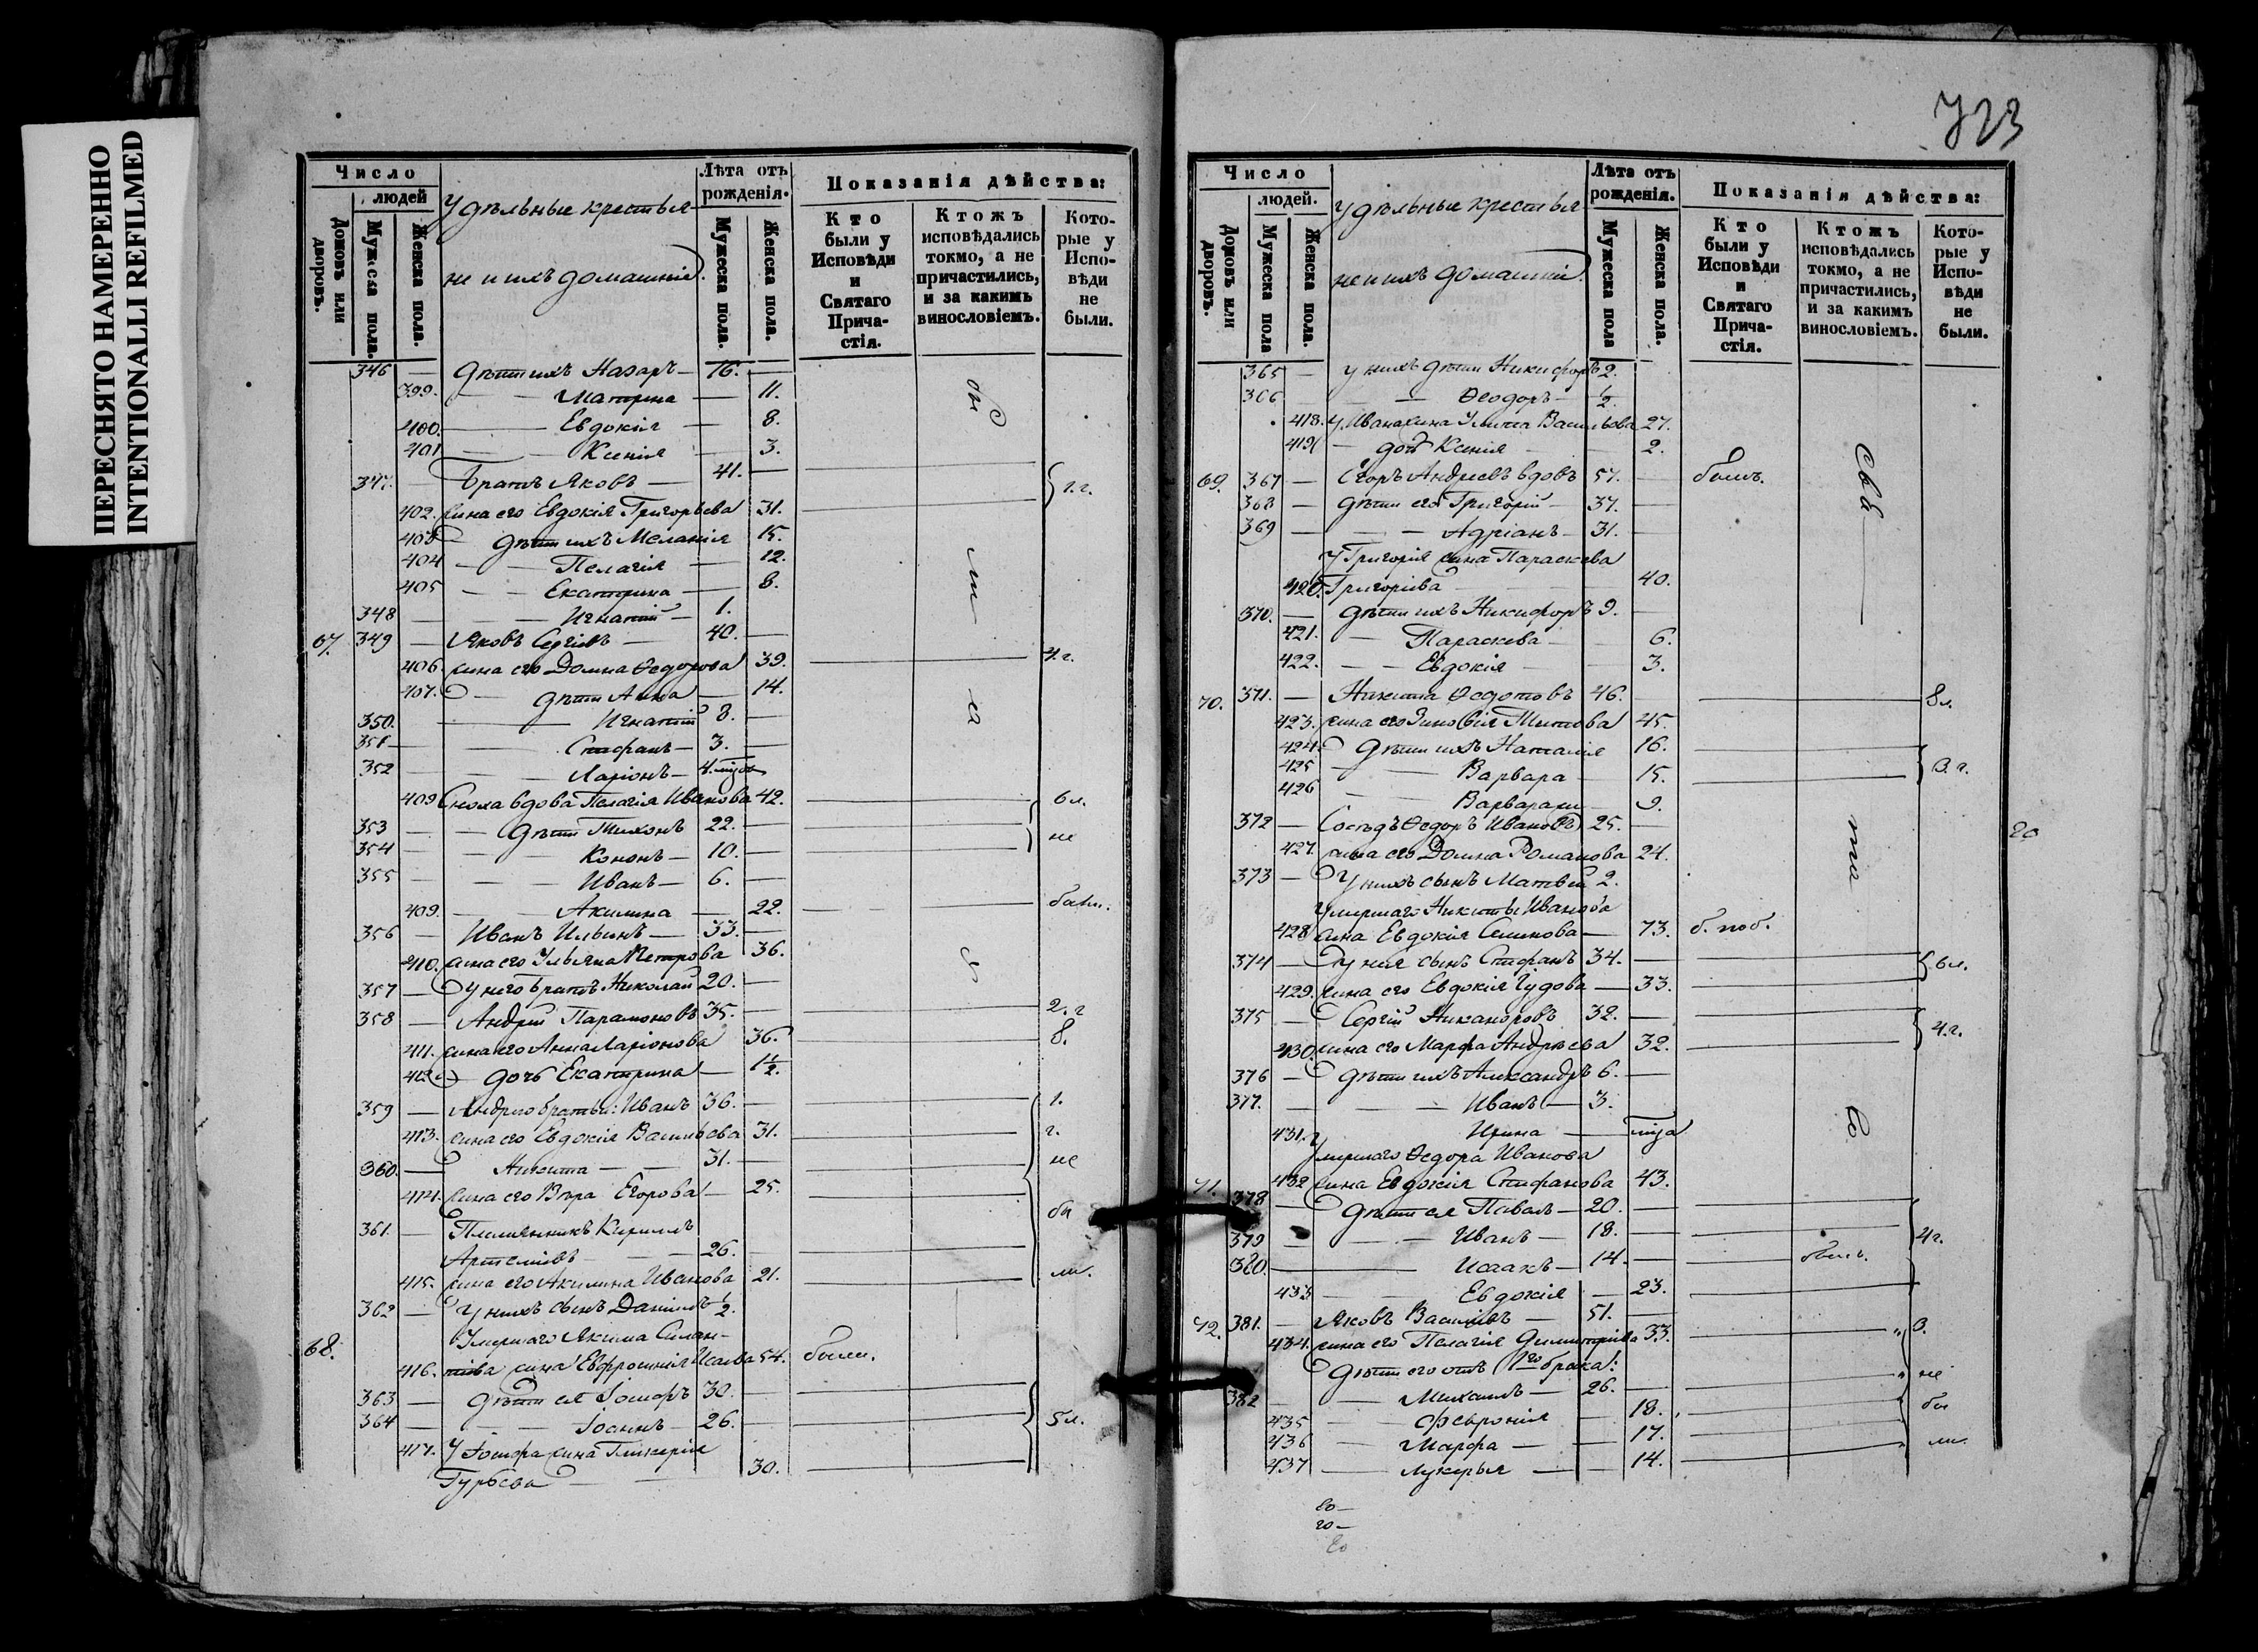 ПЕРЕСНЯТО НАМЕРЕННО
INTENTIONALLI REFILMED
Число
людей
Домовъ или дворовъ.
Мужеска пола.
Женска пола.
Удѣльные крестья-
не и ихъ домашніе.
Лѣта отъ рожденія.
Мужеска пола.
Женска пола.
Показанія дѣйства:
Кто были у Исповѣди и Святаго Прича-стія.
Ктожъ исповѣдались токмо, а не причастились, и за какимъ винословіемъ.
Кото-рые у Испо-вѣди не были.
346 — Дѣти ихъ Назаръ — 16. —
399. — — Матрена — 11.
400. — Евдокія — 8.
401 — — Ксенія — 3.
347. — Братъ Яковъ — 41. —
402. жена его Евдокія Григорьева 31. 1.г.
403 — дѣти ихъ Меланія 15.
404 — — Пелагія — 12.
405 — — Екатерина — 8.
348 — — Игнатій — 1.
67. 349 — Яковъ Сергѣевъ — 40. —
406. жена его Домна Ѳедорова 39. 4.г.
407. — дѣти Анна — 14.
350. — Игнатій 8. —
351 — — Стефанъ — 3. —
352 — — Ларіонъ — 4. мѣсяц
409 Сноха вдова Пелагія Иванова 42. 6л.
353 — — дѣти Тихонъ 22. —
354 — — Кононъ — 10. — не
355 — — Иванъ — 6. —
409. — — Акилина — 22. были.
356 — Иванъ Ильинъ — 33. —
410. жена его Ульяна Петрова 36.
357 — У него братъ Николай 20. —
358 — Андрей Парамоновъ 35. — 2.г
411. жена его Анна Ларіонова 36. 8.
412 — дочь Екатерина — 1½.
359 — Андрея братья: Иванъ 36. — 1.
413. жена его Евдокія Васильева 31. г.
360. — Никита — — 31. — не
414. жена его Вѣра Егорова — 25.
361. — Племянникъ Кириллъ бы
Артемьевъ — — 26.
415. жена его Акилина Иванова 21. ли.
362 — У нихъ сынъ Даніилъ ½.
68. Умершаго Якима Силан-
416. тьева жена Евфросинія Исаева 54. были.
363 — дѣти ея Іосифъ 30. —
364 — — Іоаннъ — 26. — 5л.
417. У Іосифа жена Гликерія
Гурьева — 30.
723
Число
людей.
Домовъ или дворовъ.
Мужеска пола
Женска пола.
Удѣльные крестья
не и ихъ домашніе.
Лѣта отъ рожденія.
Мужеска пола
Женска пола.
Показанія дѣйства:
Кто были у Исповѣди и Святаго Прича-стія.
Ктожъ исповѣдались токмо, а не причастились, и за какимъ винословіемъ.
Кото-рые у Испо-вѣди не были.
365 — У нихъ дѣти Никифоръ 2.
366 — — Ѳеодоръ — ½.
418. У Ивана жена Улита Васильева 27.
419 — дочь Ксенія — 2.
69. 367 — Егоръ Андреевъ вдовъ 57. — былъ.
368 — дѣти его Григорій — 37. —
369 — — Адріанъ — 31. —
У Григорія жена Параскева
420. Григорьева 40.
370. — дѣти ихъ Никифоръ 9. —
421. — Параскева — 6.
422. — — Евдокія — 3.
70. 371. — Никита Ѳедотовъ 46. — 8л.
423. жена его Зиновія Титова 45.
424. дѣти ихъ Наталія 16.
425 — — Варвара — 15. 3.г.
426 — Варвара же — 9.
372 — Сосѣдъ Ѳедоръ Ивановъ 25. —
427. жена его Домна Романова 24.
20
373 — У нихъ сынъ Матвѣй 2.
Умершаго Никиты Иванова
428 жена Евдокія Семенова — 73. б. поб.
374 — У нея сынъ Стефанъ 34. — 6л.
429. жена его Евдокія Гудова — 33.
375 — Сергій Никаноровъ 32. — 4г.
430. жена его Марфа Андреева 32.
376 — дѣти ихъ Александръ 6. —
377. — — Иванъ — 3.
431. Ирина —
Умершаго Ѳедора Иванова
71. 432 жена Евдокія Стефанова 43.
378 — дѣти ея Павелъ — 20. —
379 — — Иванъ — 18. — 4г.
380. — Исаакъ — 14. — былъ.
433 — Евдокія — 23.
72. 381. — Яковъ Васильевъ — 51. —
434. жена его Пелагія Димитріева 33. 3.
дѣти его отъ 1го брака: не
382 — Михаилъ — 26. —
435 — Февронія — 18. бы
436 — Марфа — 17.
437 — Лукерья — 14. ли.
20 —
20 —
20